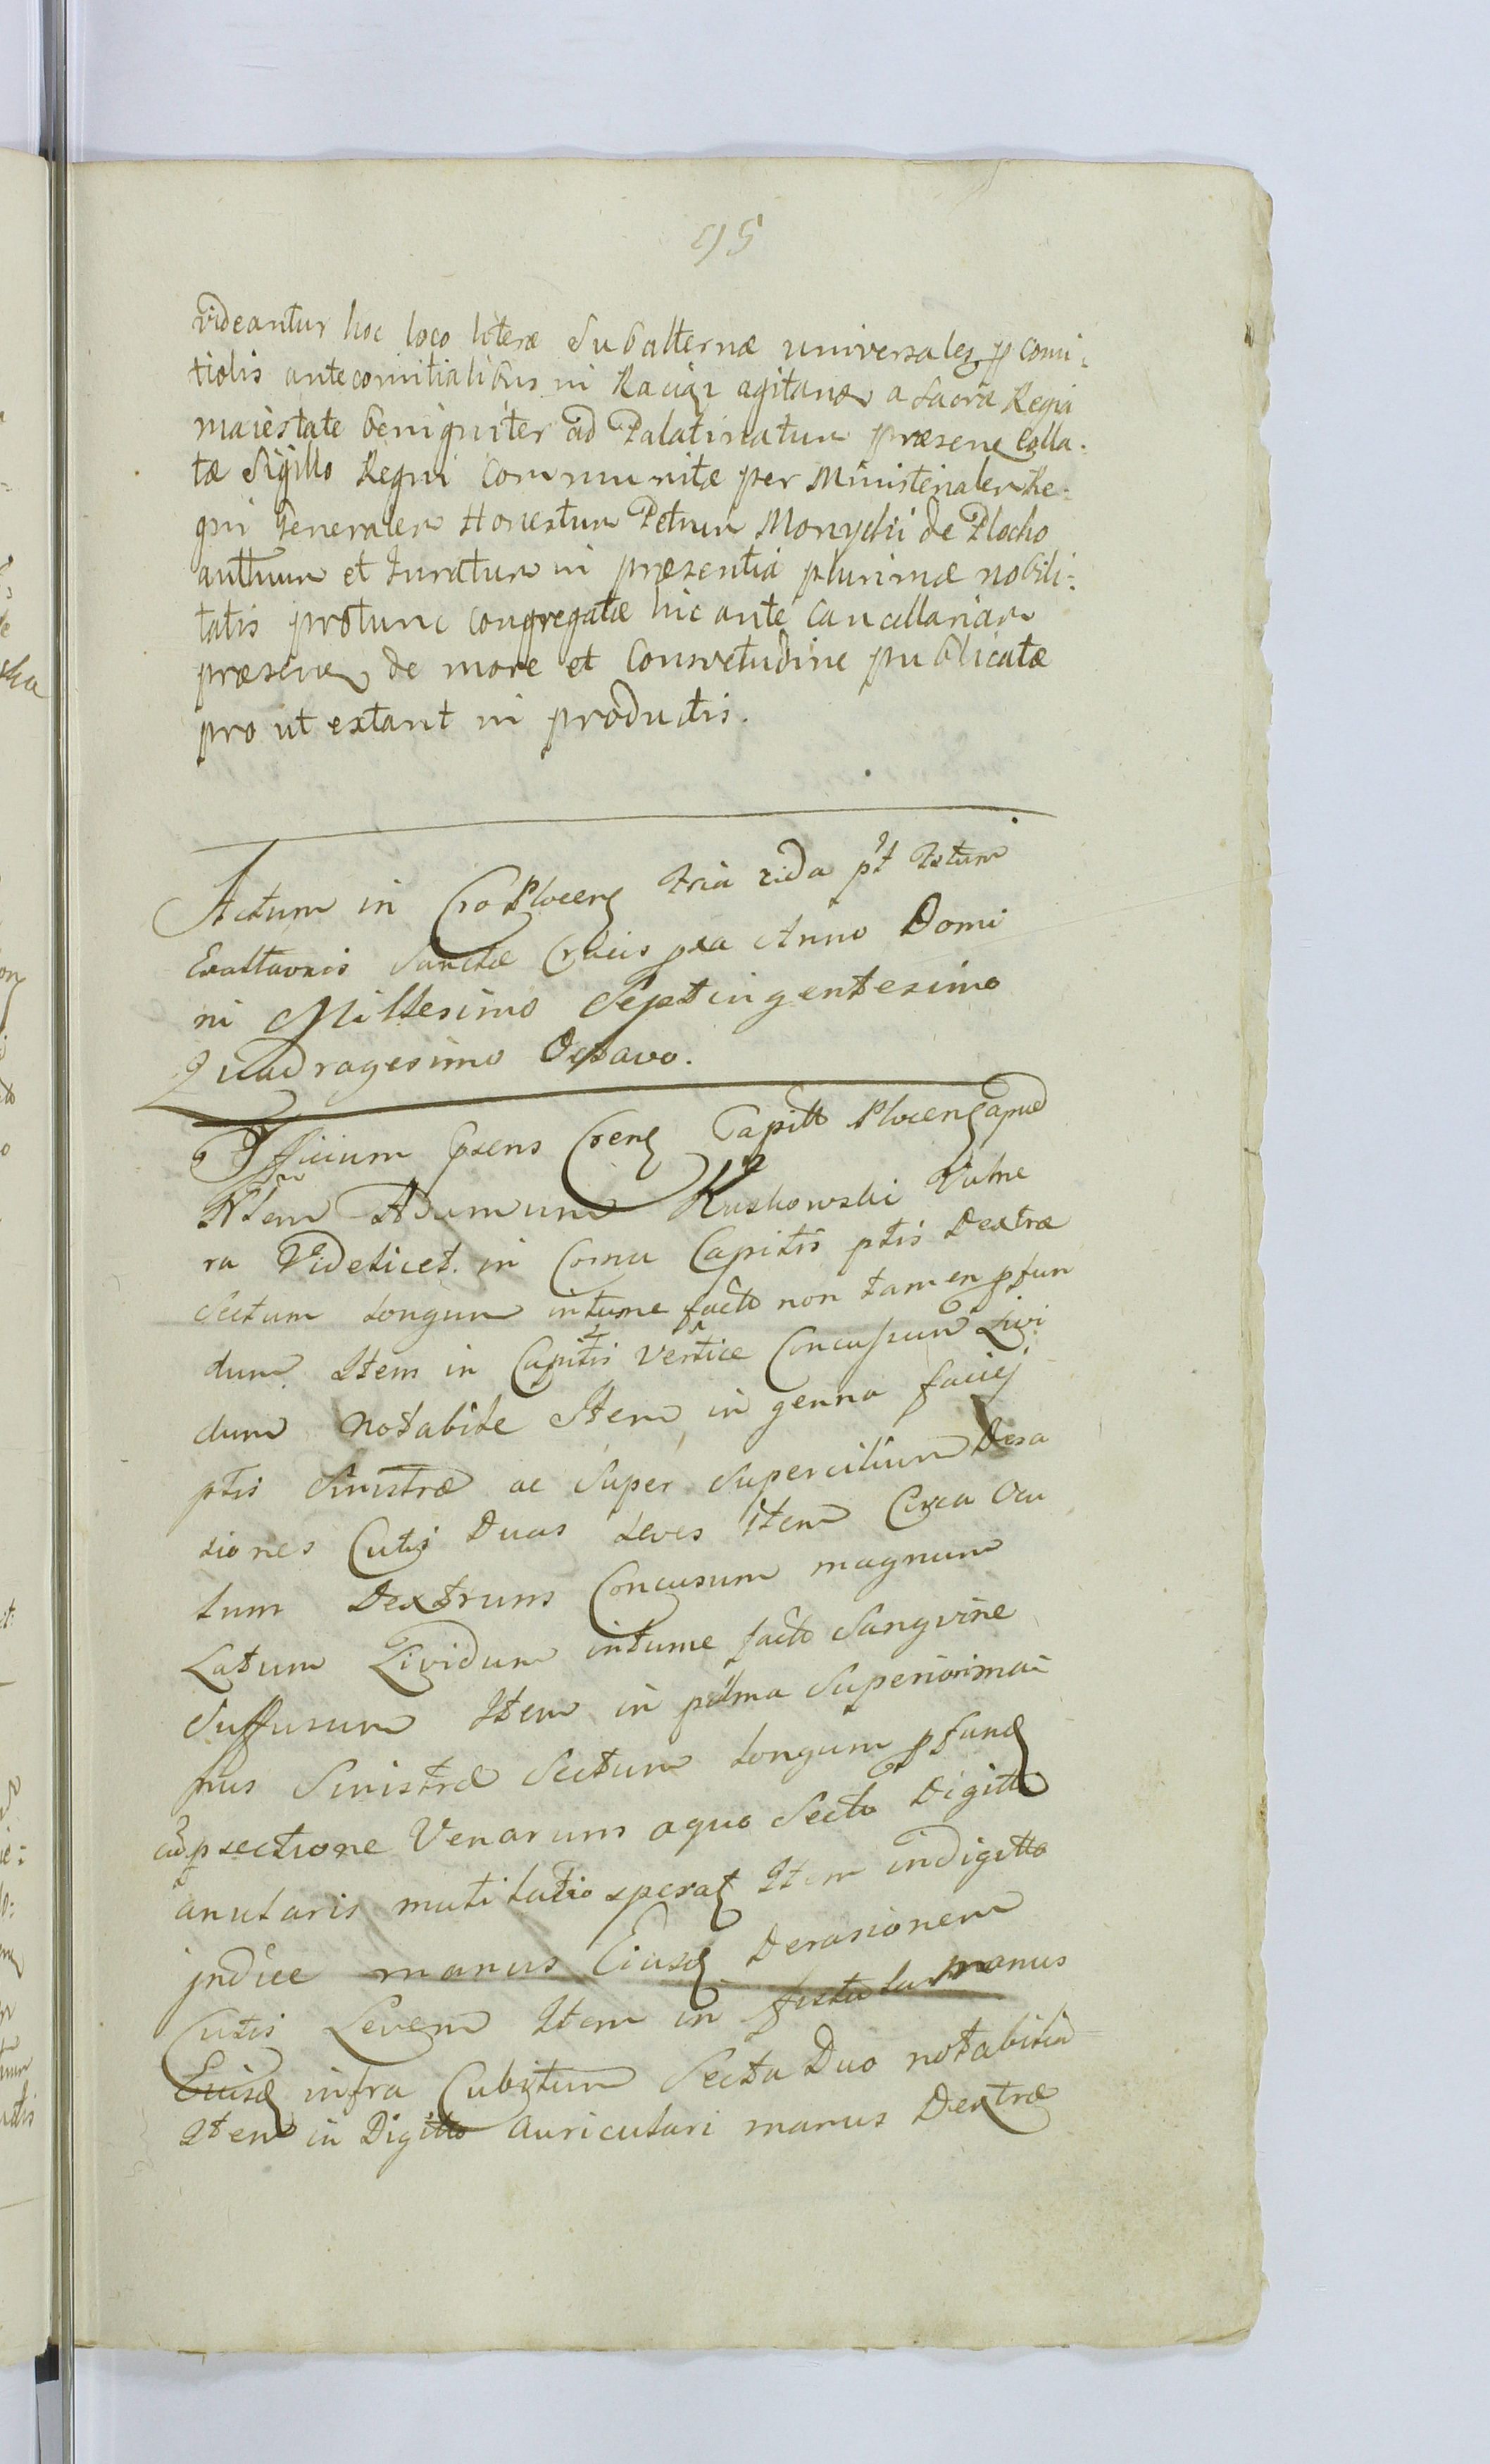 95
videantur hoc loco literæ Subalternæ universales p Comi:
tiolis antecomitialibus in Raciąz agitand a Sacra Regia
maiestate benigniter ad Palatinatum præsen Colla:
tæ Sigillo Regni Communitæ per Ministerialem Re:
gni Generalem Honestum Petrum Monychii de Plocko
autthum et Juratum in præsentia plurimæ nobili:
tatis protunc congregatæ hic ante Cancellariam
præsen de more et Consvetudine publicatæ
pro ut extant in productis.
Actum in Cro Plocen fria 2ida pt festum
Exaltaonis Sanctæ Crucis pxa Anno Domi
ni Millesimo Septingentesimo
Quadragesimo Octavo.
Officium Psens Cren Capitt Plocen apud
Nlem Adamum Kuskowski Vulne
ra Videlicet in Coma Capitis ptis Dextræ
Sectum longum intume facto non tamen pfun
dum Item in Capitis vertice Concussum Livi
dum notabile Item in genna faciej
ptis Sinistræ ac Super Supercilium Dera
siones Cutis Duas leves item Circa Ocu
lum Dextrum Concusum magnum
Latum Lividum intume facto Sangvine
Suffusum Item in palma Superiori ma
nus Sinistræ Sectum longum pfund
cu psectione Venarum aquo Secto Digitto
anularis mutilatio sperat Item in digitto
jndice manus Eiusd Derasionem
Cutis Levem Item in fistula manus
Eiusd infra Cubitum Secta Duo notabilia
Item in Digitto auriculari manus Dextræ